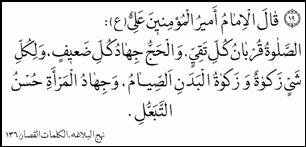 (۱۹) قالَ الْاِمامُ أَميرُ الْمُؤْمِنينَ عَلِيٌّ (ع):
الصَّلٰوةُ قُرْبانُ كُلِّ تَقِيٍّ، وَالْحَجُّ جِهادُ كُلِّ ضَعيفٍ، وَلِكُلِّ
شَيْءٍ زَكٰوةٌ وَ زَكٰوةُ الْبَدَنِ الصِّيامُ، وَجِهادُ الْمَرْأَةِ حُسْنُ
التَّبَعُّلِ.
نهج البلاغه، الكلمات القصار: ۱۳۶